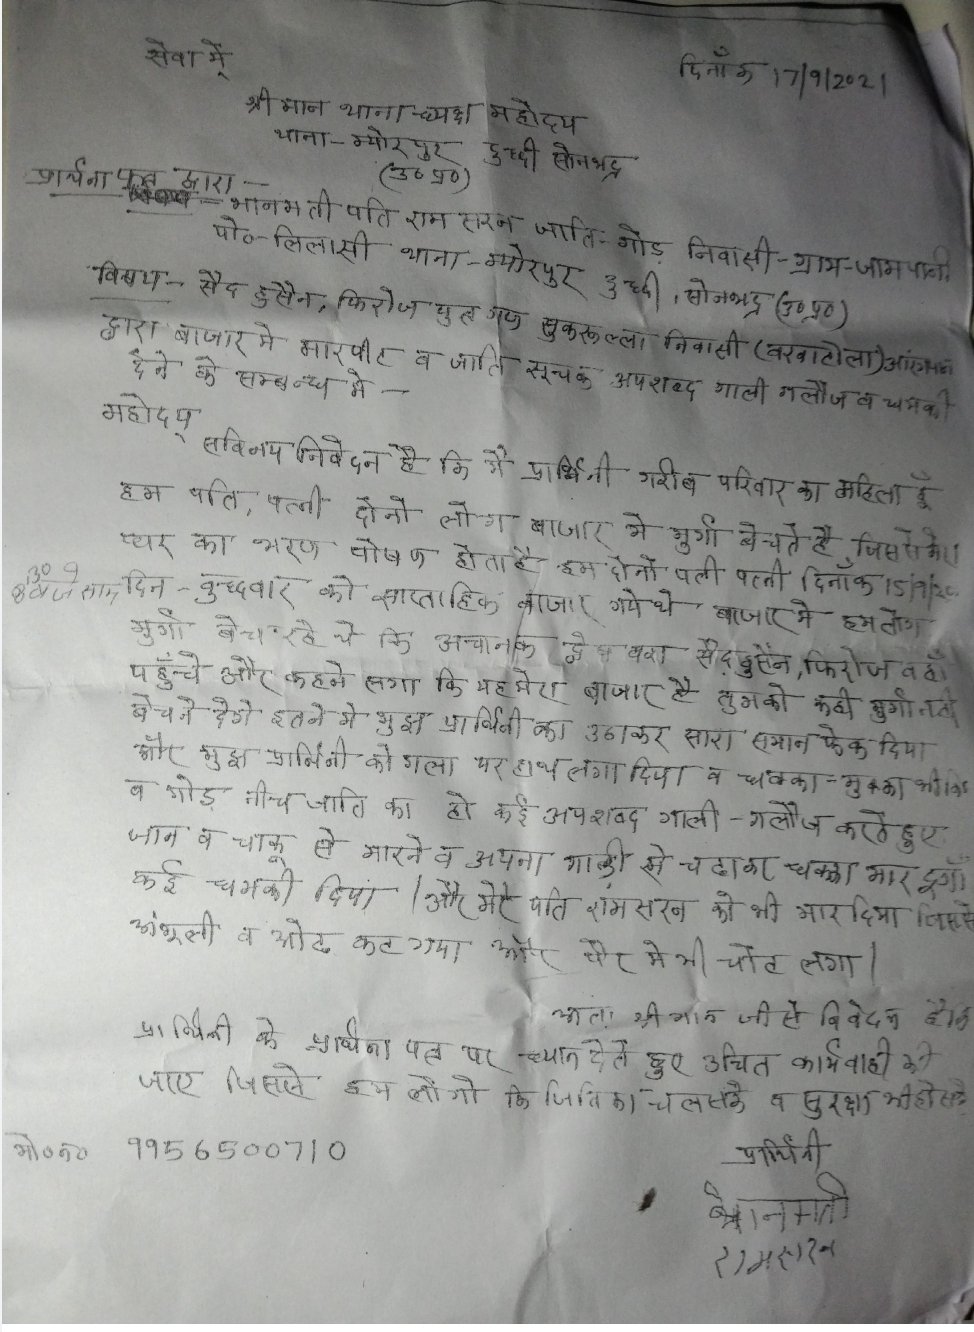 सेवा में
दिनाँक 17/9/2021
श्री मान थानाध्यक्ष महोदय
थाना - म्योरपुर दुध्दी सोनभद्र
(उ० प्र०)
प्रार्थना पत्र द्वारा -
भानमती पति राम सरन जाति - गोड़ निवासी - ग्राम - जामपानी
पो० - लिलासी थाना - म्योरपुर दुध्दी, सोनभद्र (उ० प्र०)
विषय - सैद हुसैन, फिरोज पुत्र गण सुकरुल्ला निवासी
द्वारा बाजार मे मारपीट व जाति सूचक अपशब्द गाली गलौज व धमकी
देने के सम्बन्ध मे -
महोदय
सविनय निवेदन है कि मै प्रार्थिनी गरीब परिवार का महिला हूँ
हम पति, पत्नी दोनो लोग बाजार मे मुर्गा बेचते है, जिससे मेरा
घर का भरण पोषण होता है हम दोनों पती पत्नी दिनाँक 15/9/
दिन - बुध्दवार को साप्ताहिक बाजार गये थे बाजार मे हम लोग
मुर्गा बेच रहे थे कि अचानक सैद हुसैन, फिरोज वहाँ
पहुँचे और कहने लगा कि यह मेरा बाजार है तुमको कही मुर्गा नही
बेचने देगें इतने मे मुझ प्रार्थिनी का उठाकर सारा समान फेक दिया
और मुझ प्रार्थिनी को गला पर हाथ लगा दिया व धक्का - मुक्का भी
व गोड़ नीच जाति का हो कई अपशब्द गाली - गलौज करते हुए
जान व चाकू से मारने व अपना गाड़ी से चढाकर धक्का मार दूगाँ
कई धमकी दिया। और मेरे पति रामसरन को भी मार दिया जिससे
अंगूली व ओठ कट गया और पैर मे भी चोट लगा।
अतः श्री मान जी से निवेदन है कि
प्रार्थिनी के प्रार्थना पत्र पर ध्यान देते हुए उचित कार्यवाही की
जाए जिससे हम लोगो कि जिविका चल सके व सुरक्षा भी हो सके
प्रार्थिनी
मो० न० 9956500710
भानमती
रामसरन